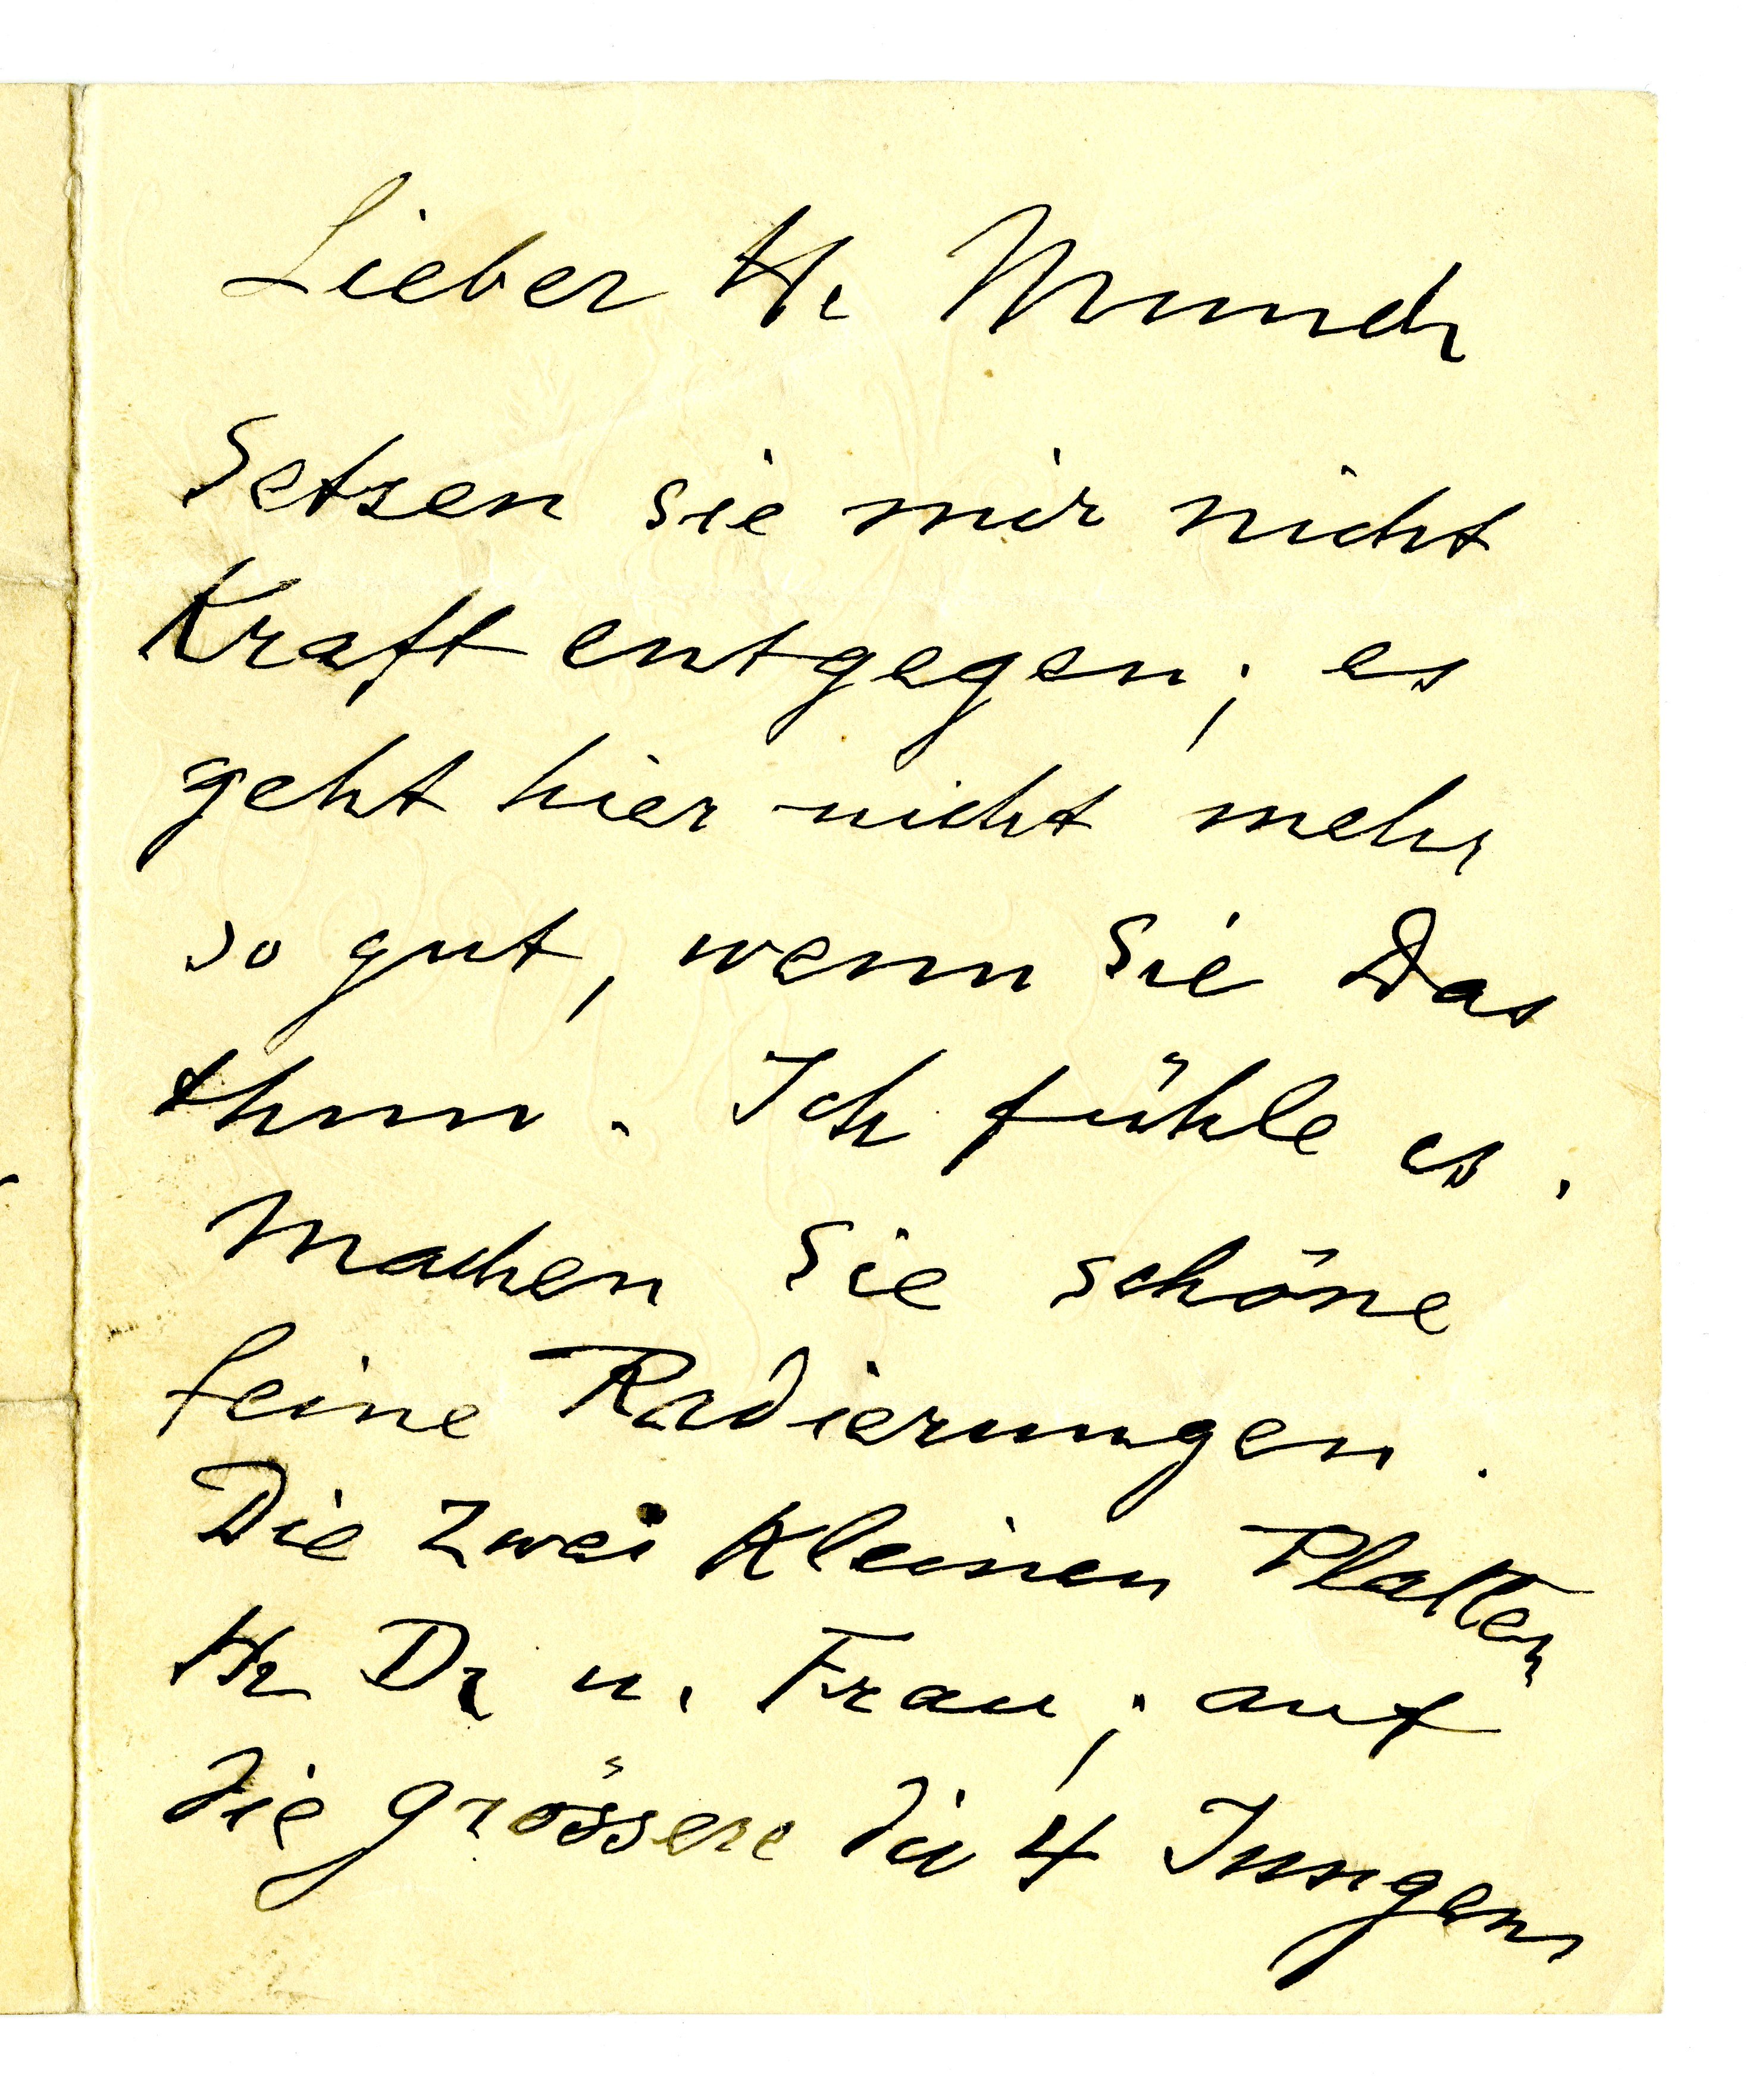 Lieber Hr Munch
Setzen sie mir nicht
Kraft entgegen; es
geht hier nicht mehr
so gut, wenn Sie Das
thun. Ich fühle es.
Machen Sie schöne
feine Radierungen.
Die zwei Kleinen Platten
Hr Dr u. Frau; auf
die grössere die 4 Jungens